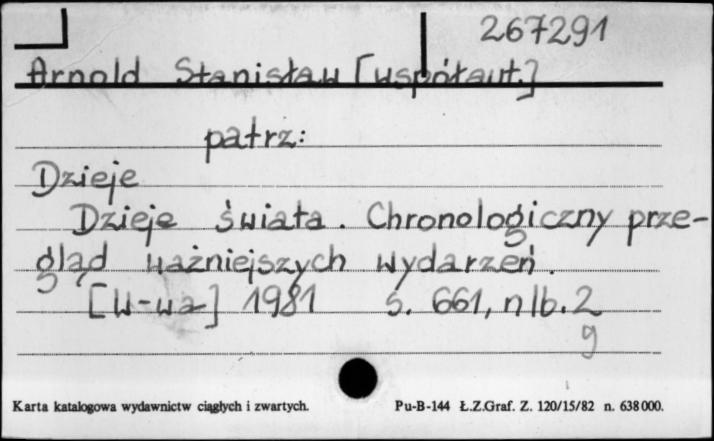 267291
Arnold Stanisław [współaut.]
patrz:
Dzieje
Dzieje świata. Chronologiczny prze-
gląd ważniejszych wydarzeń.
[W-wa] 1981 s. 661, nlb. 2
g
Karta katalogowa wydawnictw ciągłych i zwartych. Pu-B-144 Ł.Z.Graf. Z. 120/15/82 n. 638000.